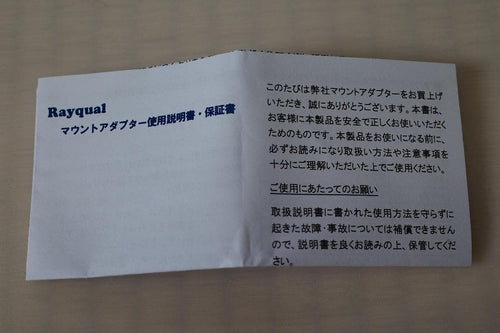 Rayqual
マウントアダプター使用説明書・保証書
このたびは弊社マウントアダプターをお買上げ
いただき、誠にありがとうございます。本書は、
お客様に本製品を安全で正しくお使いいただく
ためのものです。本製品をお使いになる前に、
必ずお読みになり取扱い方法や注意事項を
十分にご理解いただいた上でご使用ください。
ご使用にあたってのお願い
取扱説明書に書かれた使用方法を守らずに
起きた故障・事故については補償できません
ので、説明書を良くお読みの上、保管してくだ
さい。